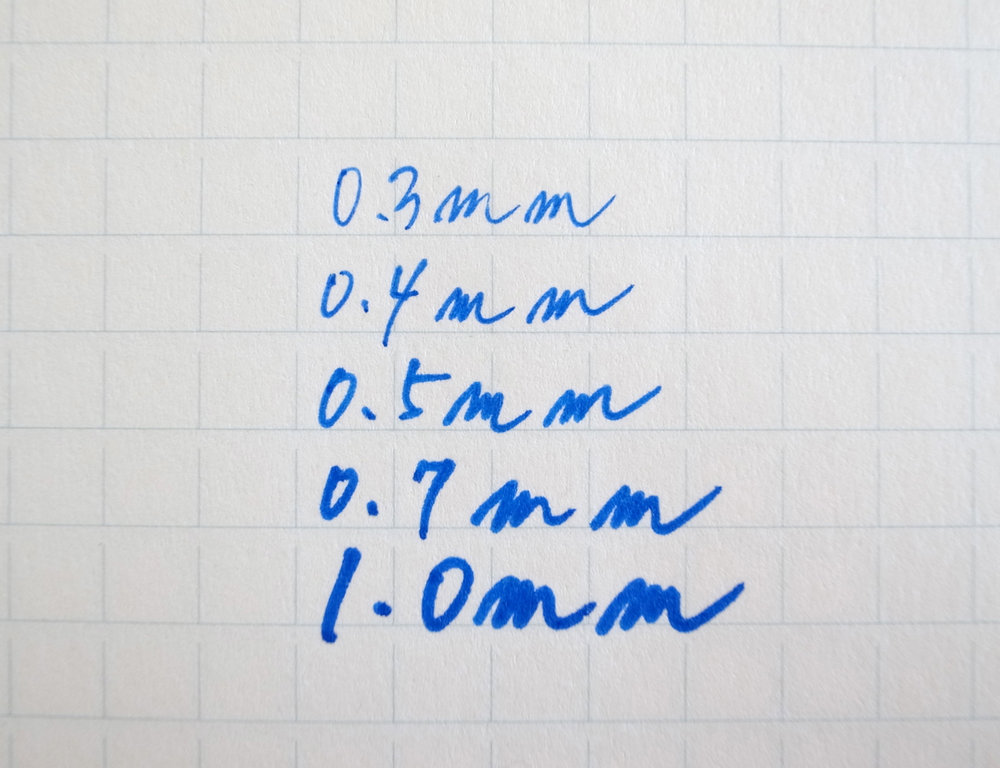 0.3mm
0.4mm
0.5mm
0.7mm
1.0mm